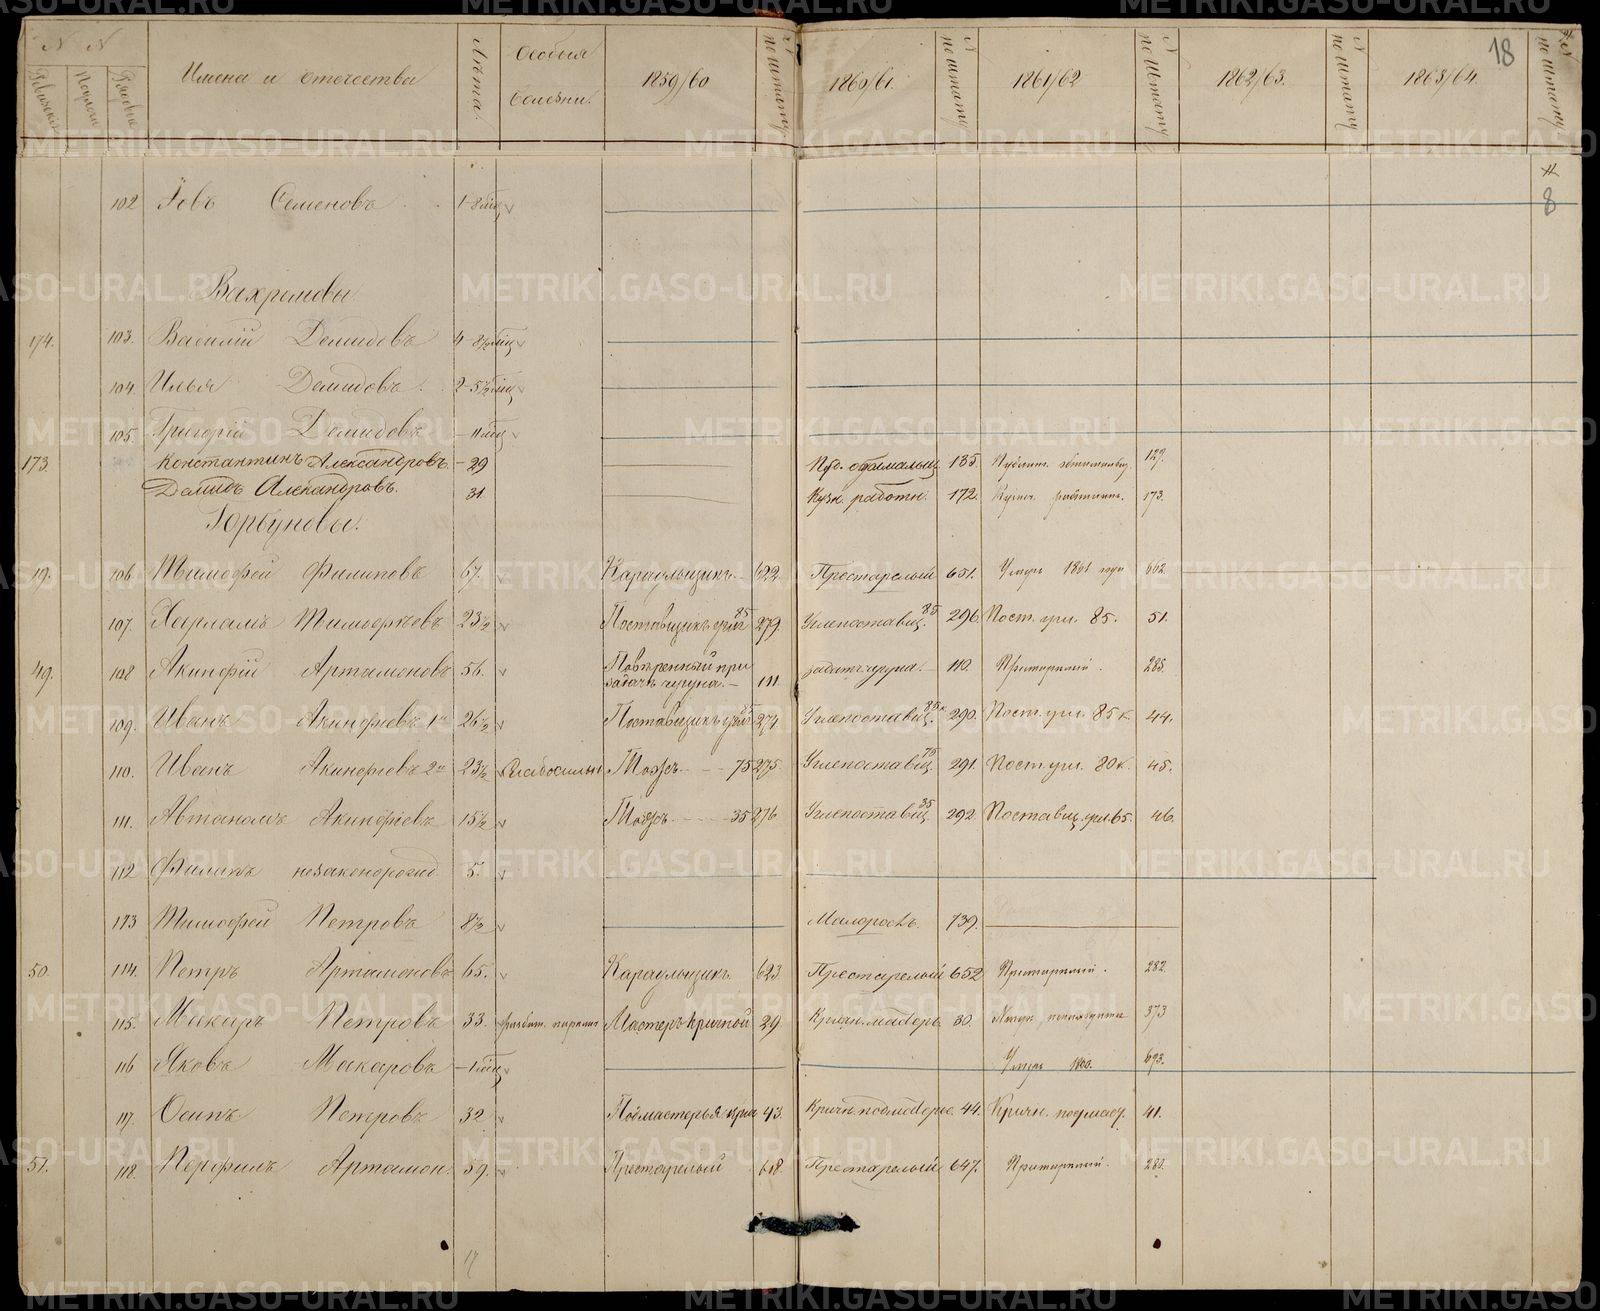 N N Имена и отечества Лѣта. Особыя болезни. 1859/60 N по штату. 1860/61. N по штату 1861/62 N по штату 1862/63. N по штату 1863/64. 18 N по штату
Ревизскій Рядовые
8
102 Іовъ Семеновъ 1-8 мѣц
Вахромовы
174. 103. Василій Демидовъ 4-8½ мѣц
104. Илья Демидовъ. 2-5½ мѣц
105. Григорій Демидовъ -11 мѣц
173. Константинъ Александровъ. -29 135. 129.
Демидъ Александровъ. 31 Кузн. работн. 172. Кузнч. работникъ. 173.
Горбуновы.
19. 106. Тимофей Филиповъ 67. Караульщикъ. 622 Престарелый 651. Умеръ 1861 года 662
107. Харламъ Тимофѣевъ 23½ Поставщикъ угля 85 279. Углепоставщ. 85 296. Пост. угл. 85. 51.
49. 108 Акинфій Артамоновъ 56. Повѣренный при задачѣ чугуна. 111 задатч. чугуна. 110. Престарелый. 285.
109. Иванъ Акинфіевъ 1й 26½ Поставщикъ угля 85 274 Углепоставщ. 85 к. 290. Пост. угл. 85 к. 44.
110. Иванъ Акинфіевъ 2й 23½ Слабосильн. Тожъ 75 275. Углепоставщ. 75 291. Пост. угл. 80 к. 45.
111. Автаномъ Акинфіевъ 15½ Тожъ 35 276 Углепоставщ. 35 292. Поставщ. угл. 65. 46.
112 Филипъ незаконорожд 5.
113 Тимофей Петровъ 8½ Малоросл. 739.
50. 114. Петръ Артамоновъ 65. Караульщикъ. 623 Престарелый 652 Престарелый. 282.
115. Макаръ Петровъ 33. Мастеръ кричной 29 Кричн. мастеръ 30. 373
116 Яковъ Макаровъ -1 мѣц Умеръ 1860. 693.
117. Осипъ Петровъ 32 Подмастерья крич 43. Кричн. подмастерье. 44. Кричн. подмаст. 41.
51. 118. Перфилъ Артамон. 59. Престарелый 618. Престарелый 647. Престарелый. 280.
17
METRIKI.GASO-URAL.RU